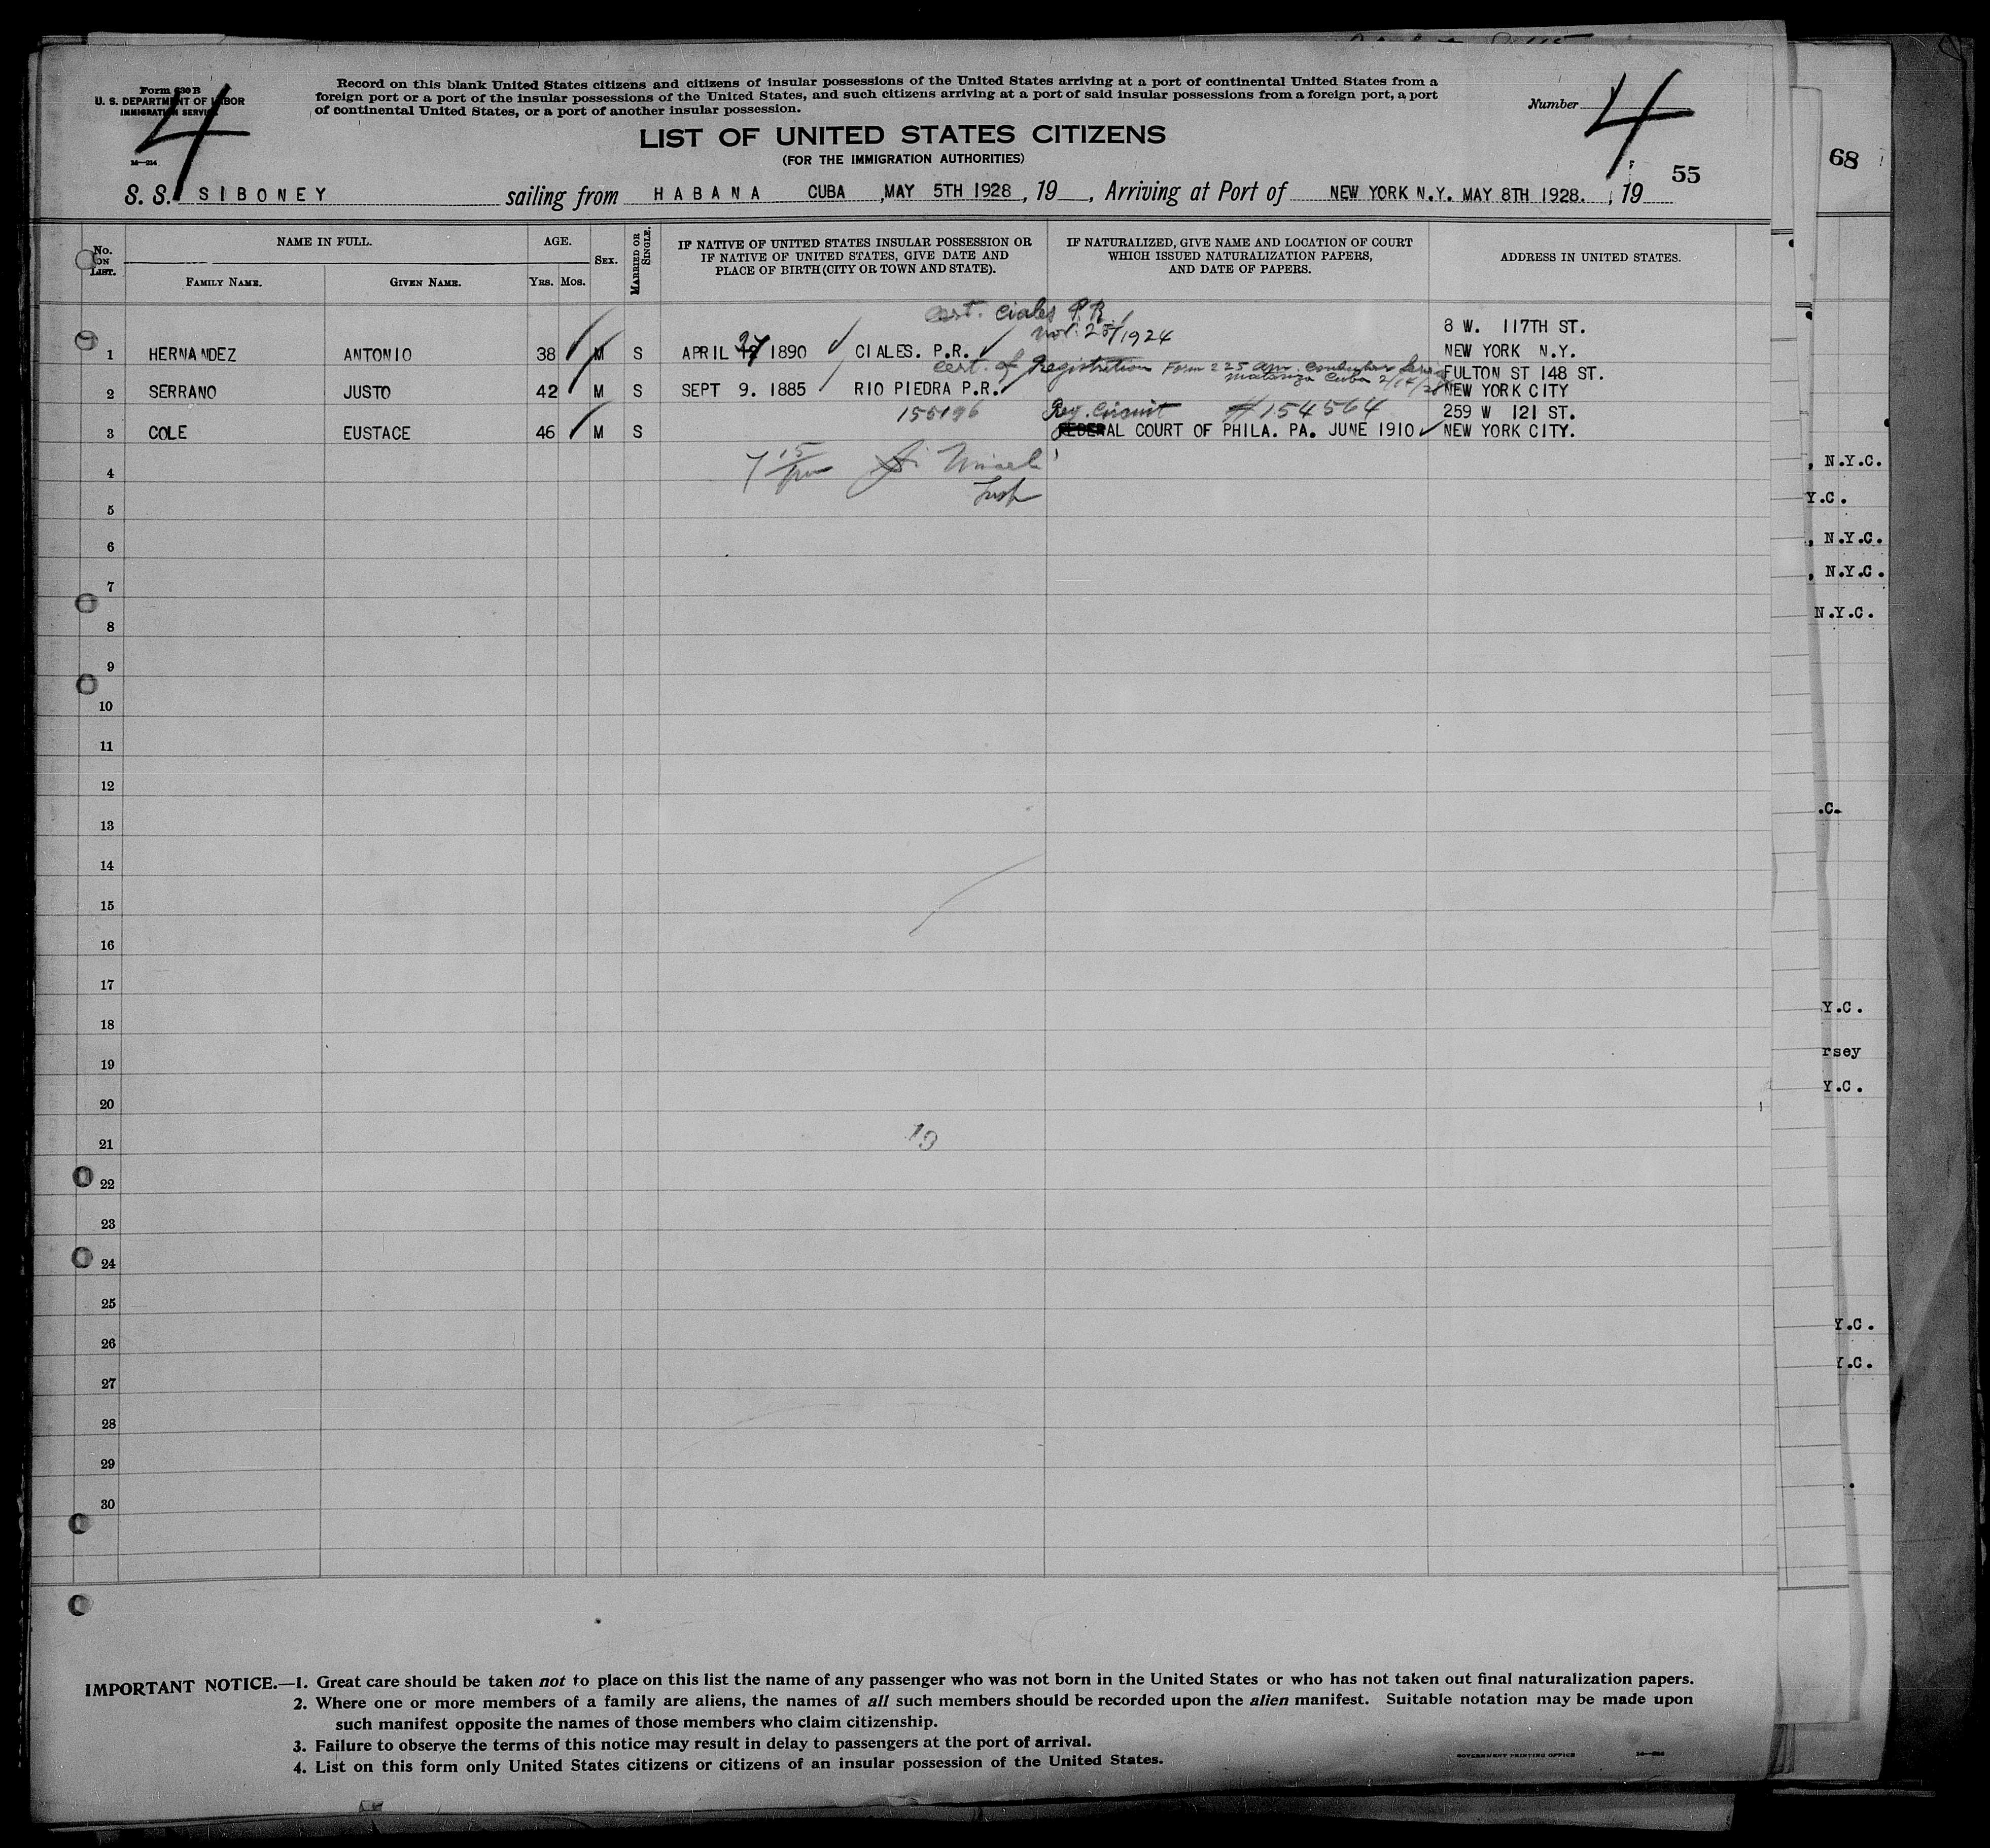 Form 630 B
U. S. DEPARTMENT OF LABOR
IMMIGRATION SERVICE
4
Record on this blank United States citizens and citizens of insular possessions of the United States arriving at a port of continental United States from a
foreign port or a port of the insular possessions of the United States, and such citizens arriving at a port of said insular possessions from a foreign port, a port
of continental United States, or a port of another insular possession.
Number 4
LIST OF UNITED STATES CITIZENS
(FOR THE IMMIGRATION AUTHORITIES)
55
68
S. S. SIBONEY sailing from HABANA CUBA , MAY 5TH 1928 , 19 , Arriving at Port of NEW YORK N.Y. MAY 8TH 1928. , 19
No. ON LIST.
NAME IN FULL.
FAMILY NAME.
GIVEN NAME.
AGE.
YRS. MOS.
SEX.
MARRIED OR SINGLE.
IF NATIVE OF UNITED STATES INSULAR POSSESSION OR
IF NATIVE OF UNITED STATES, GIVE DATE AND
PLACE OF BIRTH (CITY OR TOWN AND STATE).
IF NATURALIZED, GIVE NAME AND LOCATION OF COURT
WHICH ISSUED NATURALIZATION PAPERS,
AND DATE OF PAPERS.
ADDRESS IN UNITED STATES.
cert. Ciales P.R.
Nov. 25/1924
8 W. 117TH ST.
1 HERNANDEZ ANTONIO 38 M S APRIL 27 1890 CIALES. P.R. NEW YORK N.Y.
cert. of Registration Form 225 Am. Consular
Matanza Cuba
FULTON ST 148 ST.
2 SERRANO JUSTO 42 M S SEPT 9. 1885 RIO PIEDRA P.R. NEW YORK CITY
155196 Circuit #154564 259 W 121 ST.
3 COLE EUSTACE 46 M S FEDERAL COURT OF PHILA. PA. JUNE 1910 NEW YORK CITY.
4
5
6
7
8
9
10
11
12
13
14
15
16
17
18
19
20
21
22
23
24
25
26
27
28
29
30
19
, N.Y.C.
Y.C.
, N.Y.C.
, N.Y.C.
N.Y.C.
.C.
Y.C.
rsey
Y.C.
Y.C.
Y.C.
IMPORTANT NOTICE.—1. Great care should be taken not to place on this list the name of any passenger who was not born in the United States or who has not taken out final naturalization papers.
2. Where one or more members of a family are aliens, the names of all such members should be recorded upon the alien manifest. Suitable notation may be made upon
such manifest opposite the names of those members who claim citizenship.
3. Failure to observe the terms of this notice may result in delay to passengers at the port of arrival.
4. List on this form only United States citizens or citizens of an insular possession of the United States.
GOVERNMENT PRINTING OFFICE